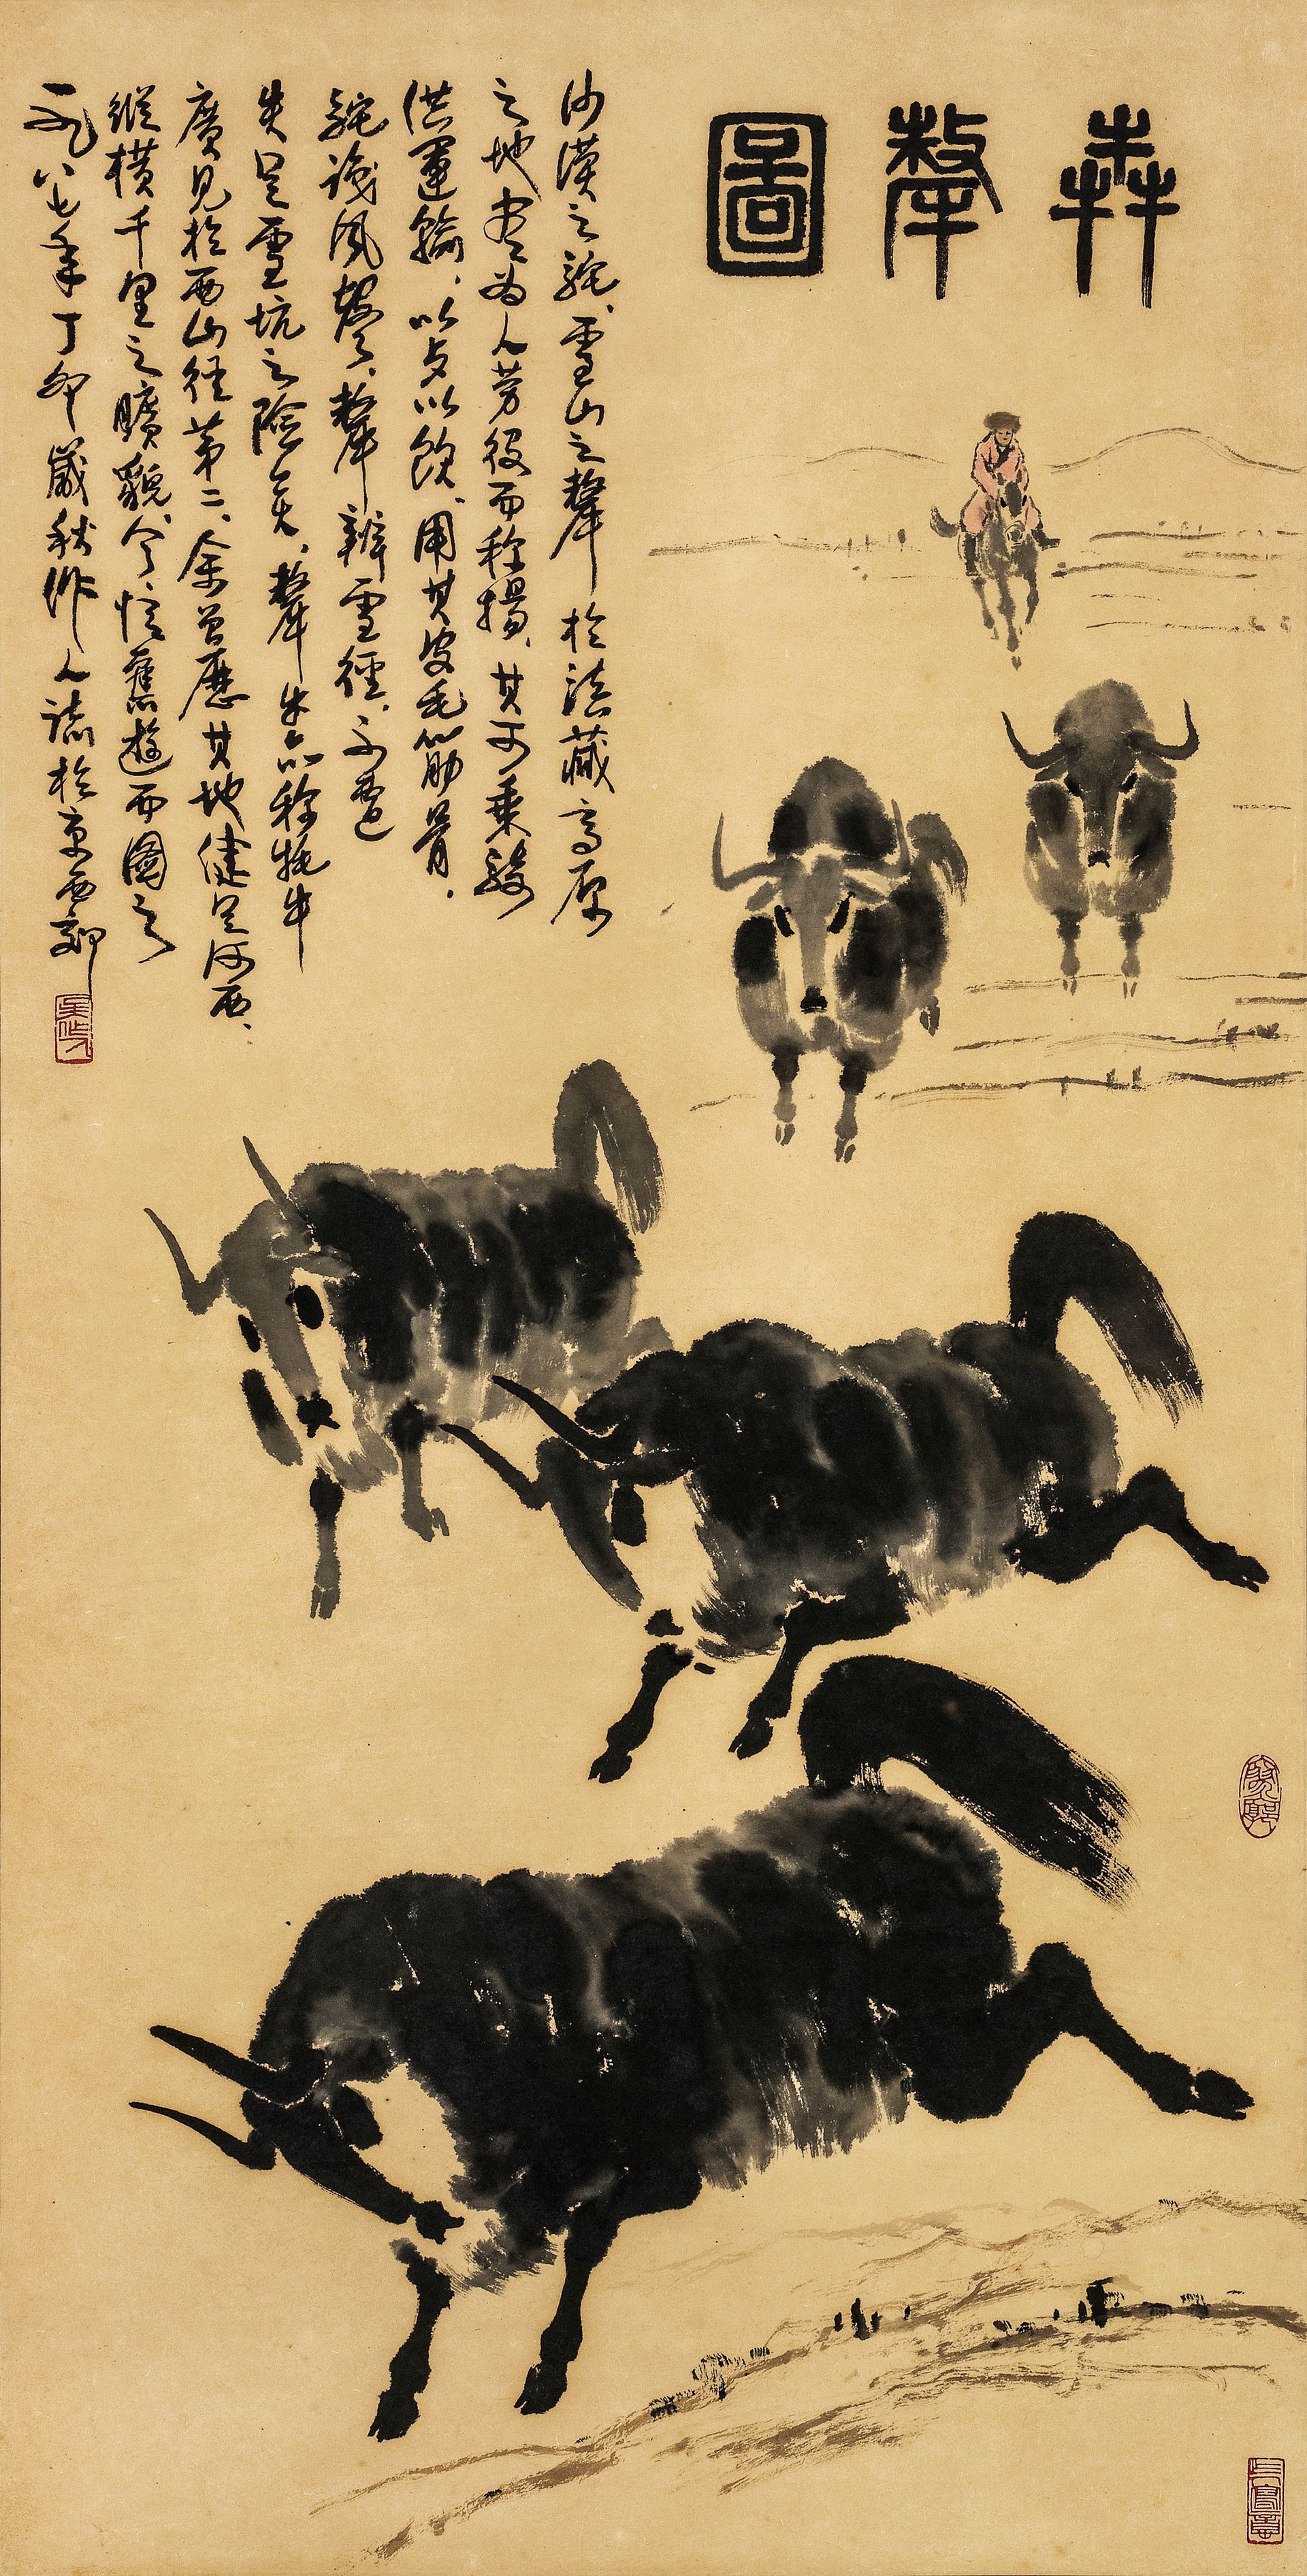 犇犛圖
沙漠之駝、雪山之犛 於諸藏高原
之地 声為人劳役而稱揚、其可乘騎
供運輸、以是以飲、用其皮毛筋骨、
駝識風聲、犛辨雪徑、不遭
失足雪坑之險矣、犛牛亦稱牦牛
廣見於西山徑第二、余曾歷其地健足河西、
縱橫千里之曠貌、今憶舊遊而圖之
八七年丁卯歲秋作人誌於京西郊